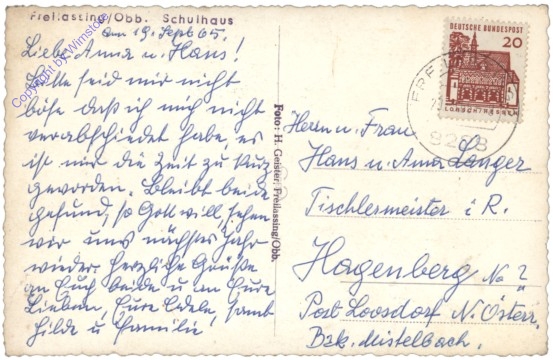 Freilassing/Obb. Schulhaus
am 19. Sept 65.
Liebe Anna u. Hans!
Bitte seid mir nicht
böse daß ich mich nicht
verabschiedet habe, es
ist mir die Zeit zu kurz
geworden. Bleibt beide
gesund, so Gott will, sehen
wir uns nächstes Jahr
wieder. Herzliche Grüße
an Euch beide u. an Eure
Lieben, Eure Edele, samt
Hilde u. Familie
Copyright by Wimstore
Foto: H. Geister, Freilassing/Obb.
DEUTSCHE BUNDESPOST
20
LORSCH/HESSEN
8228
Herrn u. Frau
Hans u. Anna Langer
Tischlermeister i. R.
Hagenberg No 2
Post Loosdorf N. Österr.
Bzk. Mistelbach.